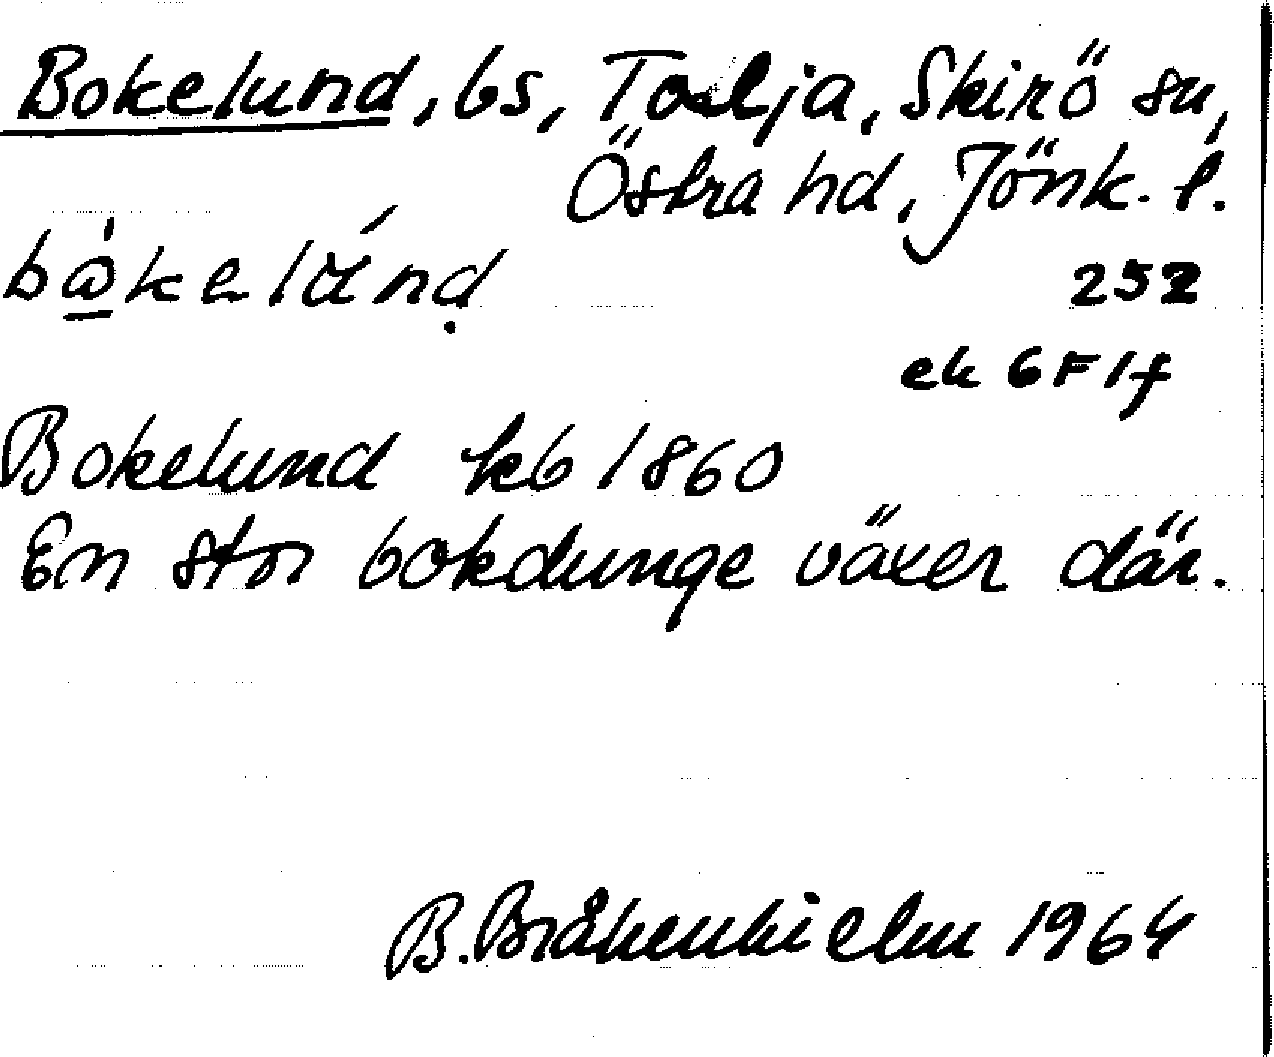 Bokelund, bs, Tolja, Skirö sn,
Östra hd, Jönk. l.
252
ek 6F1f
Bokelund kb 1860
En stor bokdunge växer där.
B. Bråkenhielm 1964